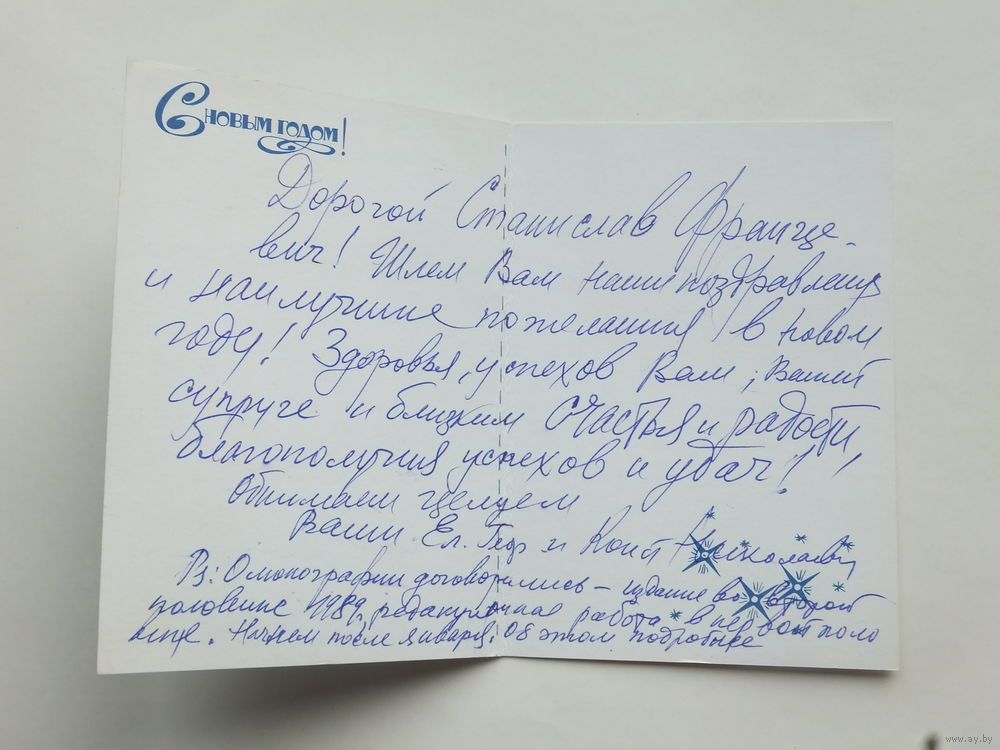 С новым годом!
Дорогой Станислав Францe-
вич! Шлем Вам наши поздравления
и наилучшие пожелания в новом
году! Здоровья, успехов Вам, Вашей
супруге и близким счастья и радости
благополучия успехов и удач!
Обнимаем целуем
Ваши Ел. Геор и Конст Николаевич
Ps: О монографии договорились – издание во второй
половине 1989, редакционная работа в первой поло
вине. Начнем после января. Об этом подробнее
www.ay.by